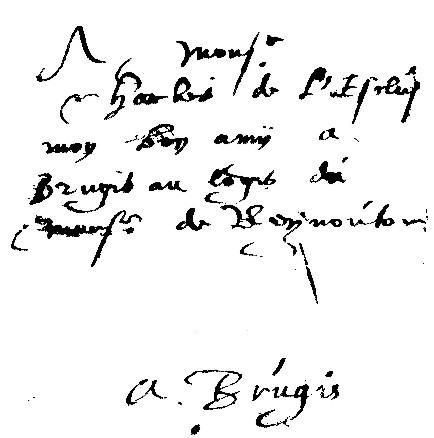 A Monsr
Charles de l'Escluse
moy bon amij a
Brugis au logis de
Monsr de Reynoutre
A. Brugis